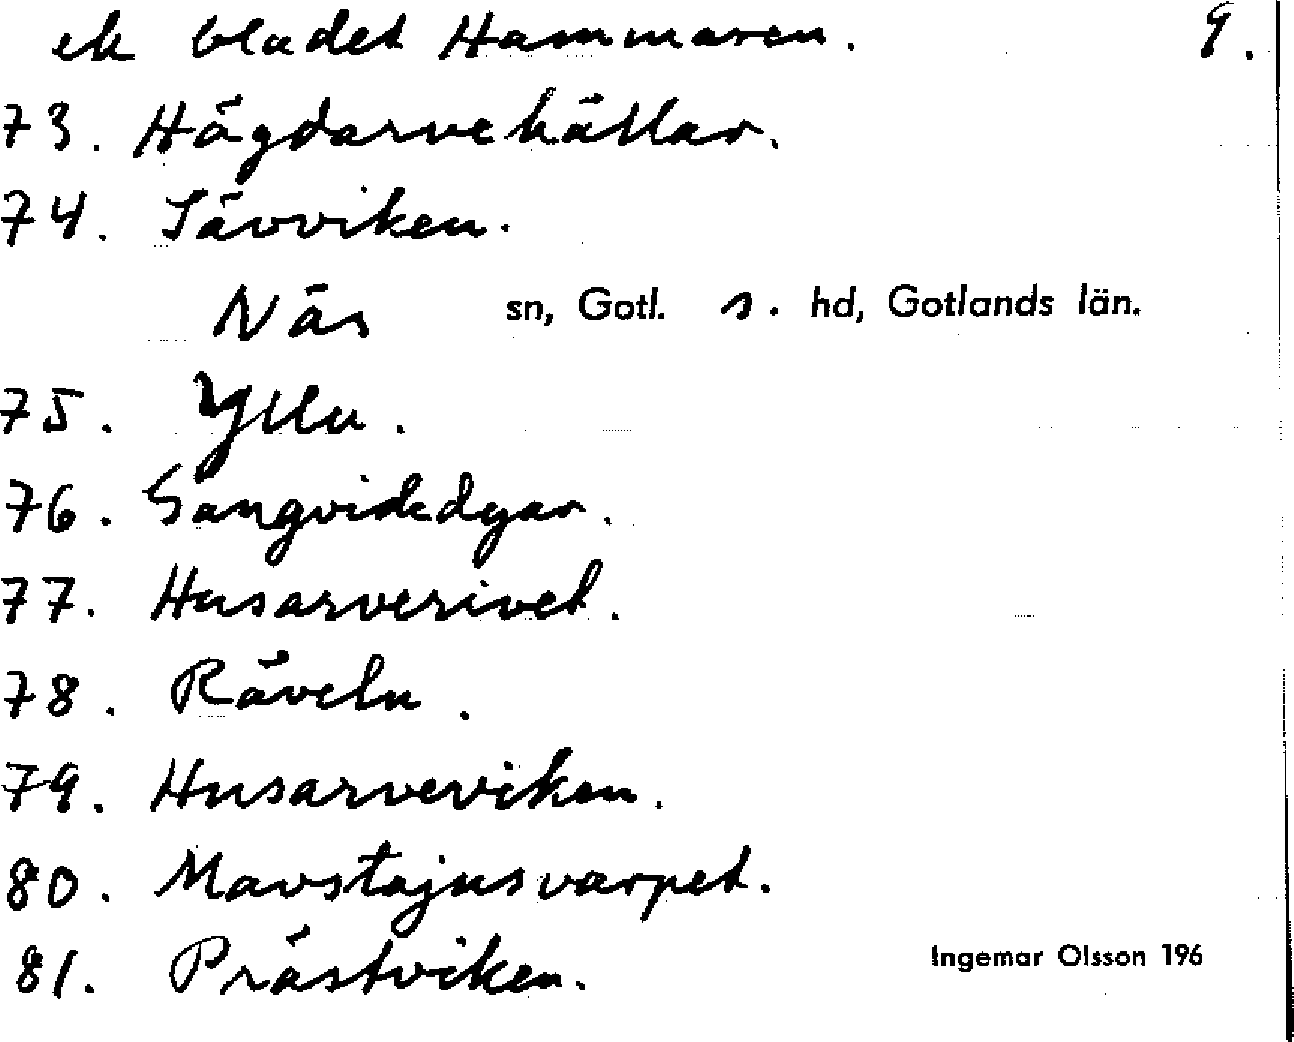 ek bladet Hammaren. 9.
73. Hägdarvehällar.
74. Sävviken.
Näs sn, Gotl. s. hd, Gotlands län.
75. Yllu.
76. Sangvidedyar.
77. Husarverivet.
78. Rävelu.
79. Husarveviken.
80. Mavstajnsvarpet.
81. Prästviken.
Ingemar Olsson 196